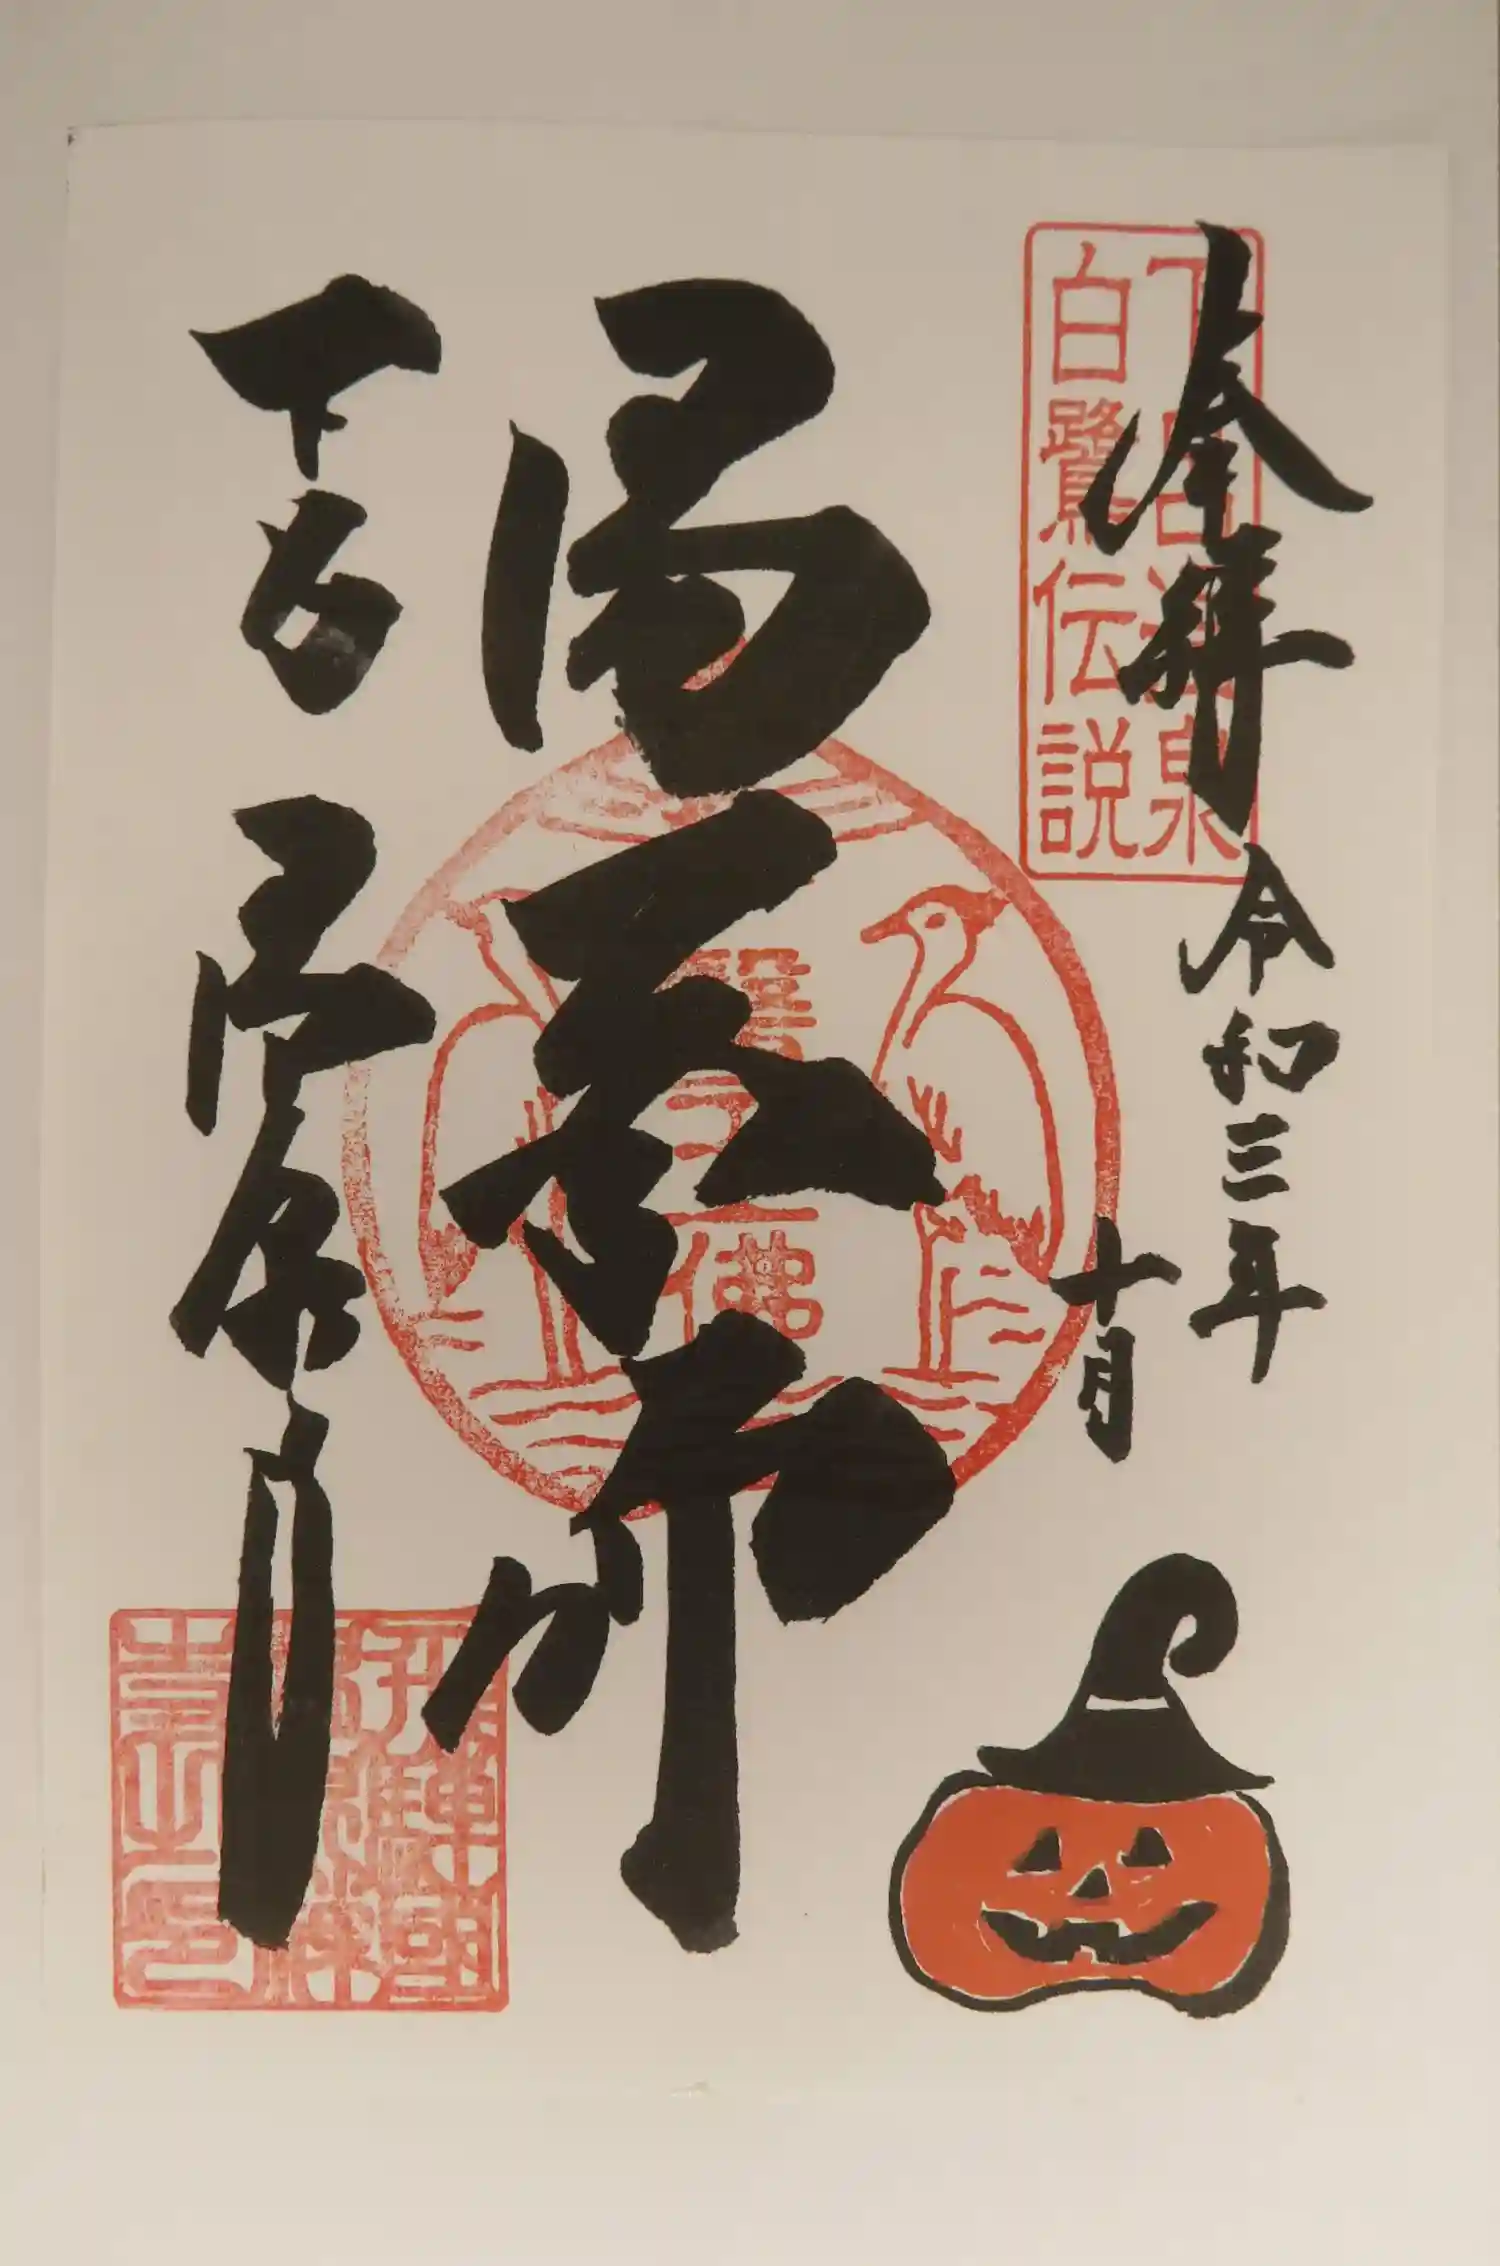 奉拝 令和三年
十月
下呂温泉
白鷺伝説
湯薬師
醫王佛
下呂 温泉寺